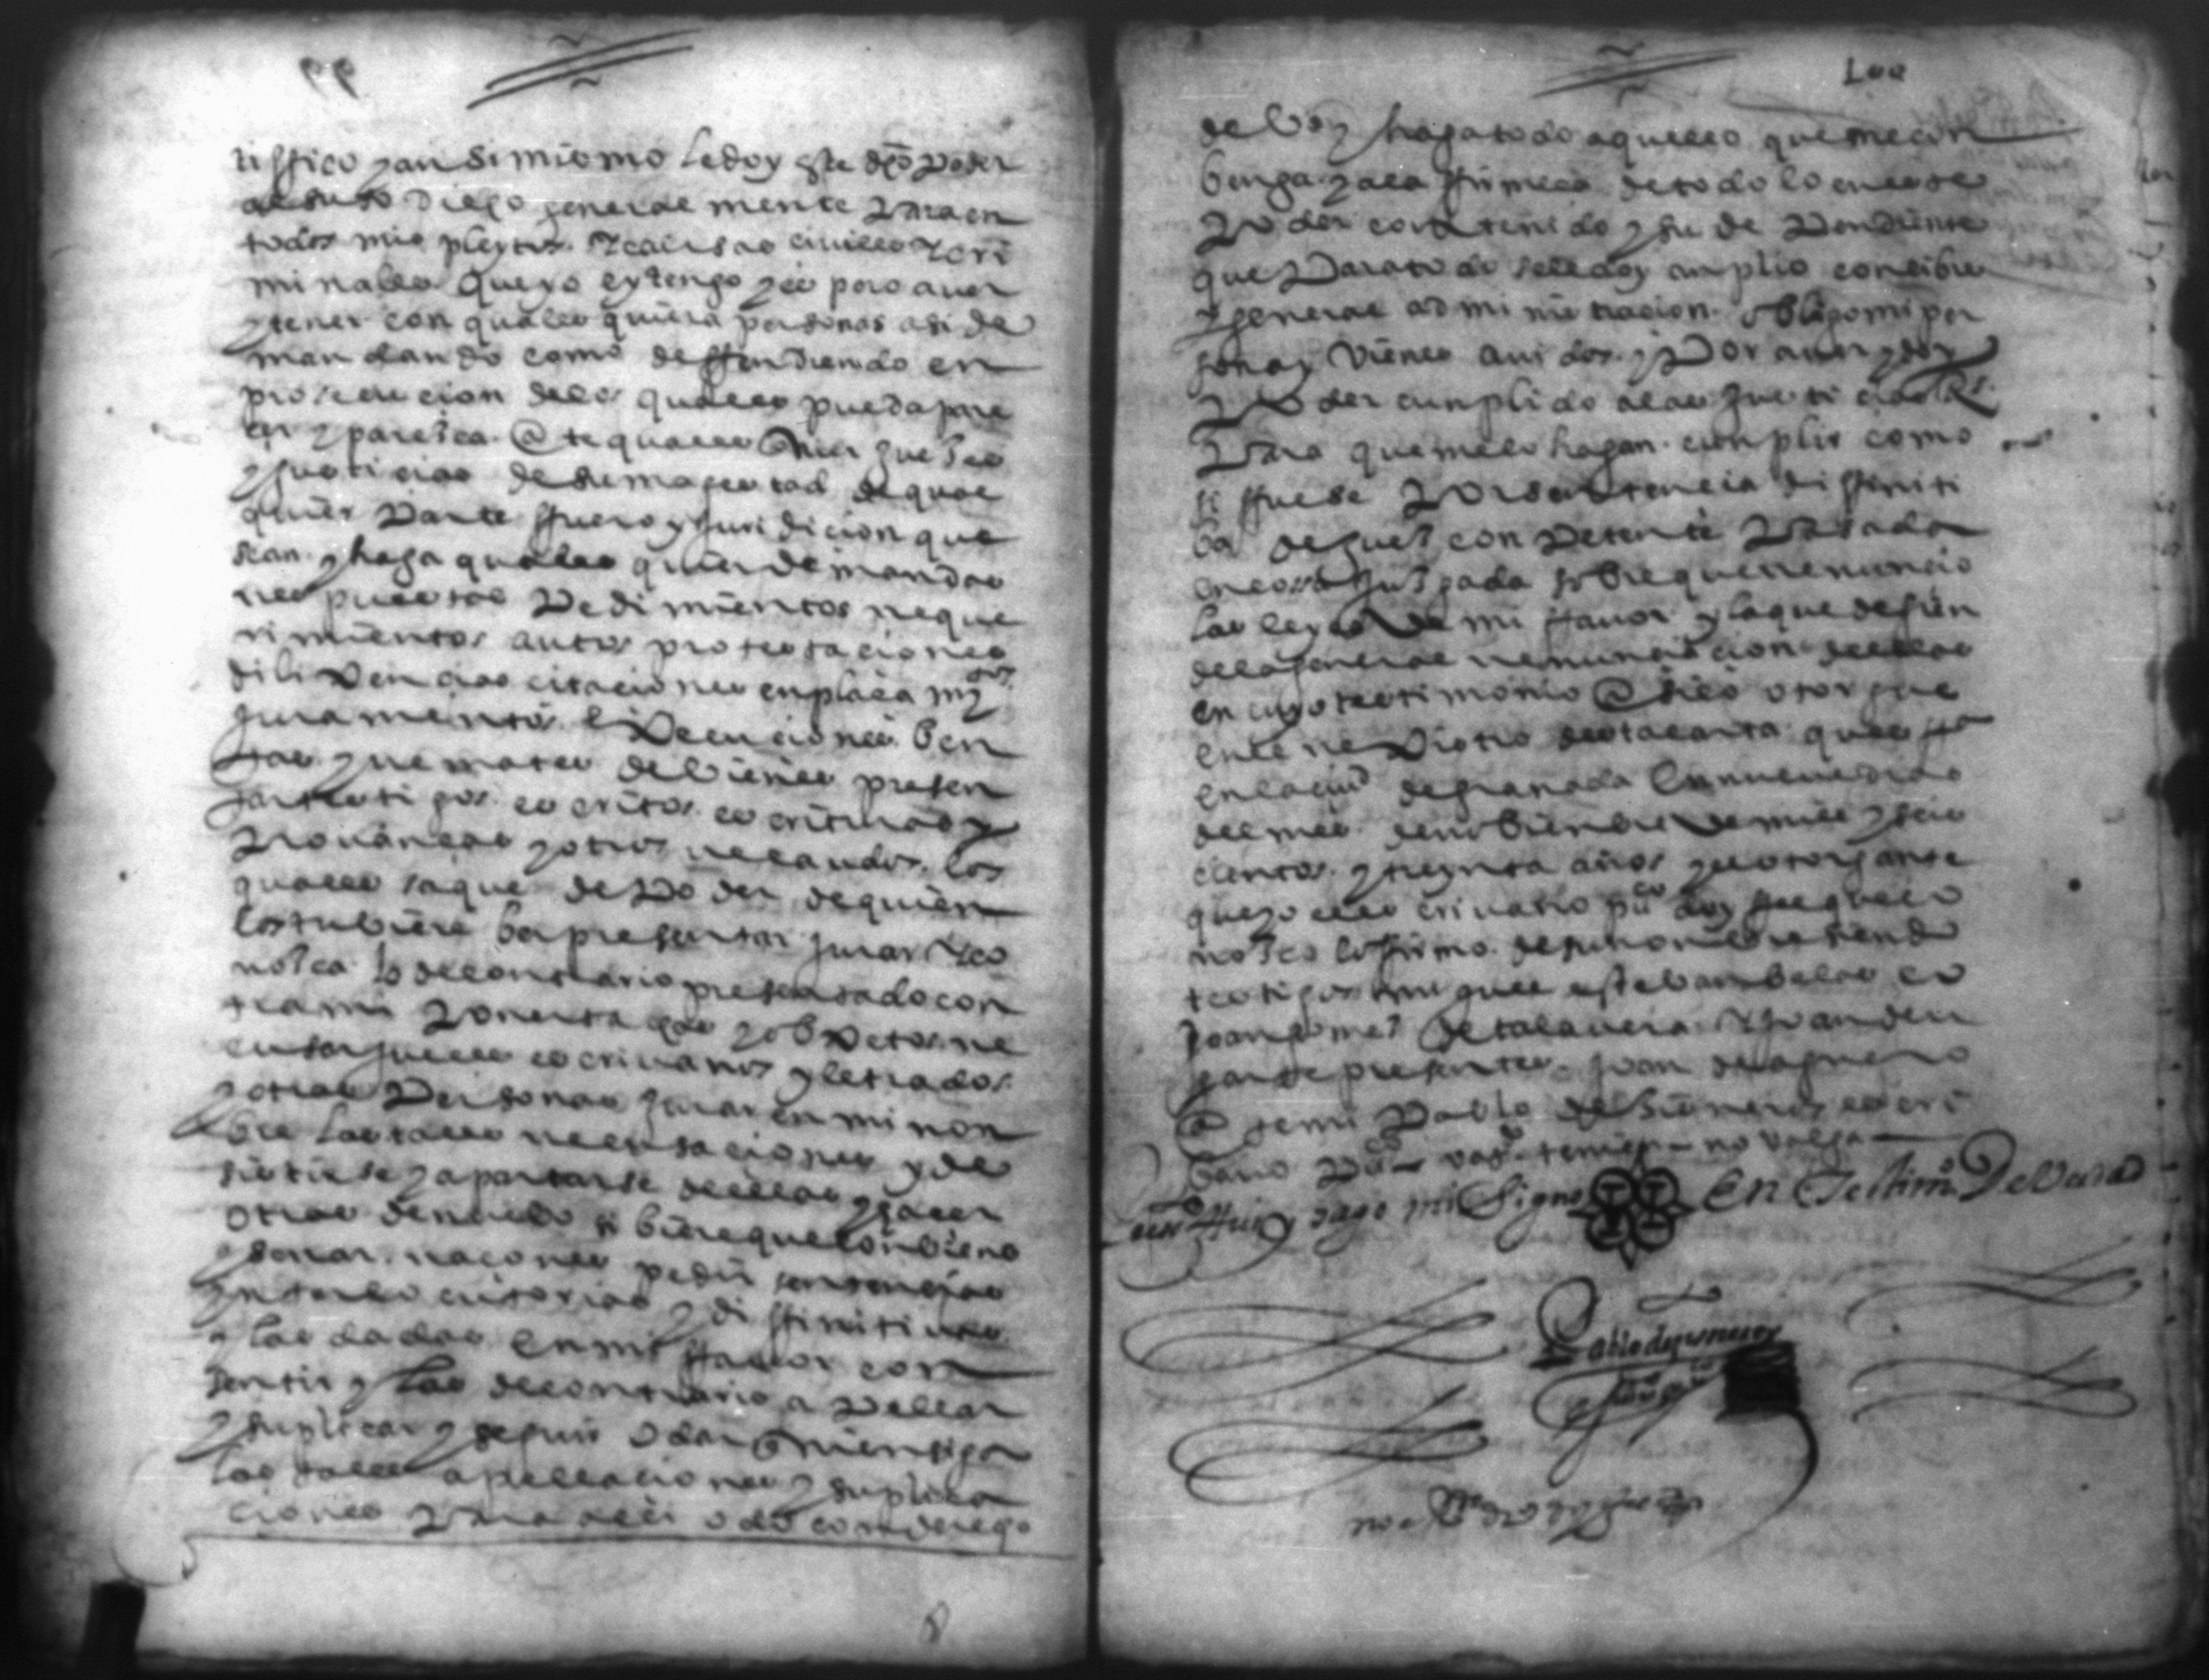 99
tiffico y ansimismo le doy este dho poder
al suso Diego generalmente para en
todos mis pleytos y causas civiles y cri
minales que yo e y tengo y espero aver
y tener con quales quiera personas asi de
mandando como deffendiendo en
prosecucion de los quales pueda pare
cer y paresca ante quales quier jueses
y justicias de su magestad de qual
quier parte ffuero y juridicion que
sean y haga quales quier demandas
respuestas pedimientos reque
rimientos autos protestaciones
dilixencias citaciones enplaçamytos
juramentos exsecuciones ben
tas y remates de bienes presen
tar testigos escritos escrituras y
provanças y otros recaudos los
quales saque de poder de quien
los tubiere ber presentar jurar y co
noscer lo de contrario presentado con
tra mi poner tachas y obxetos re
cusar jueses escrivanos y letrados
y otras personas jurar en mi non
bre las tales recusaciones y de
sistirse y apartarse de ellas y hacer
otras de nuebo si biere que conbiene
y donar raçones pedir sentencias
ynterlocutorias y diffinitivas
y las dadas en mi ffavor con
sentir y las de contrario apellar
y suplicar y seguir o dar quien siga
las tales apellaciones y suplica
ciones para alli o do con derecho
100
debo y haga todo aquello que me con
benga y a la ffirmeça de todo lo en este
poder contenido y su dependiente
que para todo se le doy amplio con libre
y general administracion obligo mi per
sona y vienes avidos y por aver y doy
poder cunplido a las justicias
para que me lo hagan cunplir como
si ffuese por sentencia diffiniti
ba de juez conpetente pasada
en cossa jusgada sobre que renuncio
las leyes de mi ffavor y la que defien
de la general renunciacion de ellas
en cuyo testimonio ansi lo otorgue
en el rexistro desta carta ques ffa
en la ciud de granada en nueve dias
del mes de nobienbre de mill y seis
cientos y treynta años y el otorgante
que yo el escrivano puco doy ffee que co
nosco lo firmo de su nonbre siendo
testigos miguel esteban belas co
joan gomes de talavera y joan den
gante presentes joan de aguero
ante mi Pablo de Sisneros escri
bano puco
fui y hago mi Signo En Testimo De Verdad
Pablo de çisneros